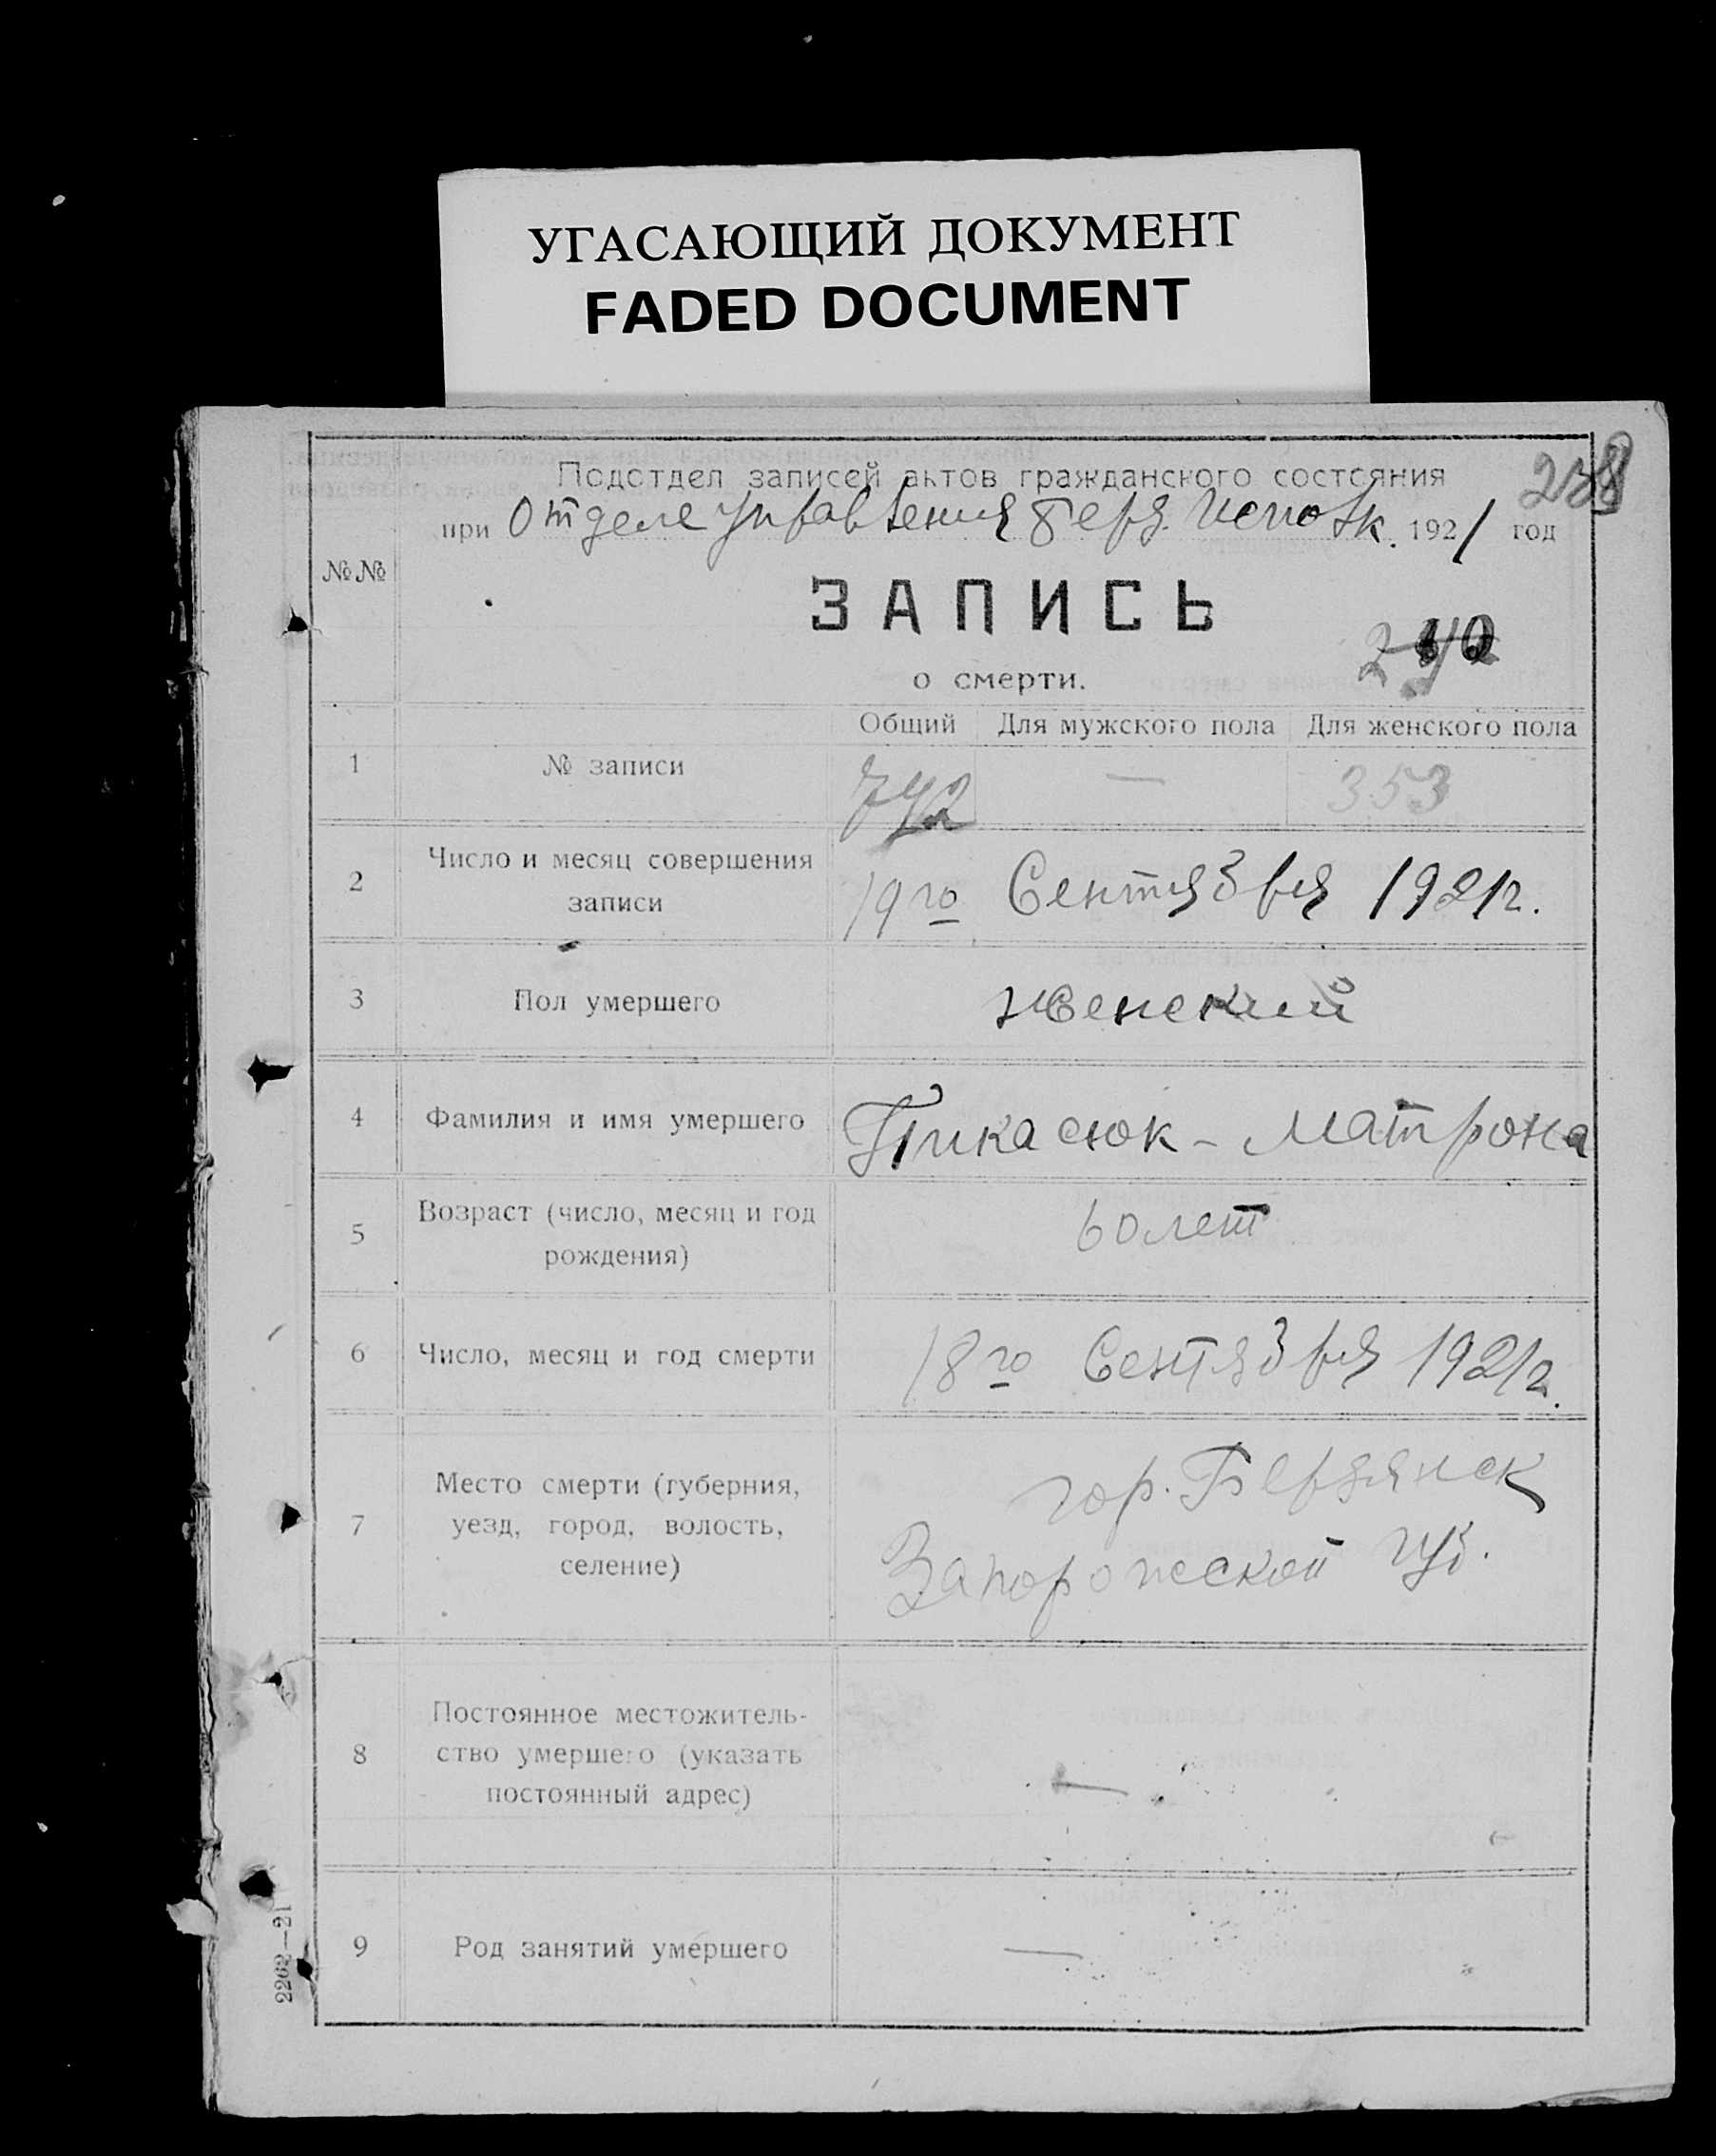 УГАСАЮЩИЙ ДОКУМЕНТ
FADED DOCUMENT
Подотдел записей актов гражданского состояния
при Отделе Управления Берд. Исполк. 1921 год
№№
ЗАПИСЬ
о смерти.
Общий Для мужского пола Для женского пола
1 № записи 742 — 353
2 Число и месяц совершения записи 19го Сентября 1921г.
3 Пол умершего женский
4 Фамилия и имя умершего Пикасюк - Матрона
5 Возраст (число, месяц и год рождения) 60 лет
6 Число, месяц и год смерти 18го Сентября 1921г.
7 Место смерти (губерния, уезд, город, волость, селение)
гор. Бердянск
Запорожской губ.
8 Постоянное местожитель-
ство умершего (указать
постоянный адрес) —
9 Род занятий умершего —
2262—21